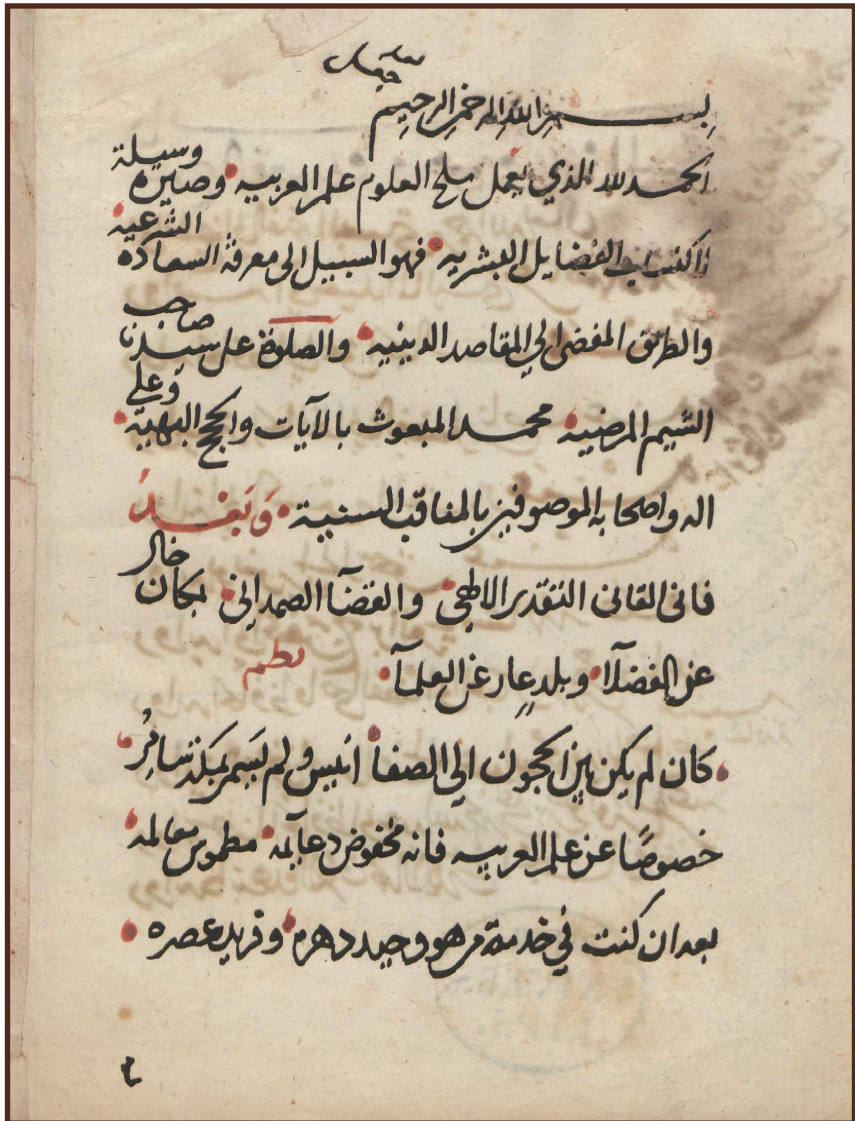 بسم الله الرحمن الرحيم
الحمد لله الذي جعل ملح العلوم علم العربيه وصيره وسيلة
لاكتساب الفضايل البشريه فهو السبيل الى معرفة السعادة الشرعية
والطريق المفضي الي المقاصد الدينيه والصلوة على سيدنا صاحب
الشيم المرضيه محمد المبعوث بالآيات والحجج البهية وعلى
اله واصحابه الموصوفين بالمناقب السنية وَبَعْدُ
فاني القاني التقدير الالهي والقضآ الصمداني بمكان خال
عن الفضلآ وبلدٍ عار عن العلمآ نظم
كان لم يكن بين الحجون الي الصفا انيس ولم يسمر بمكة سامرُ
خصوصًا عن علم العربيه فانه مخفوض دعآيمه مطموس معالمه
بعد ان كنت في خدمة من هو وحيد دهره وفريد عصره